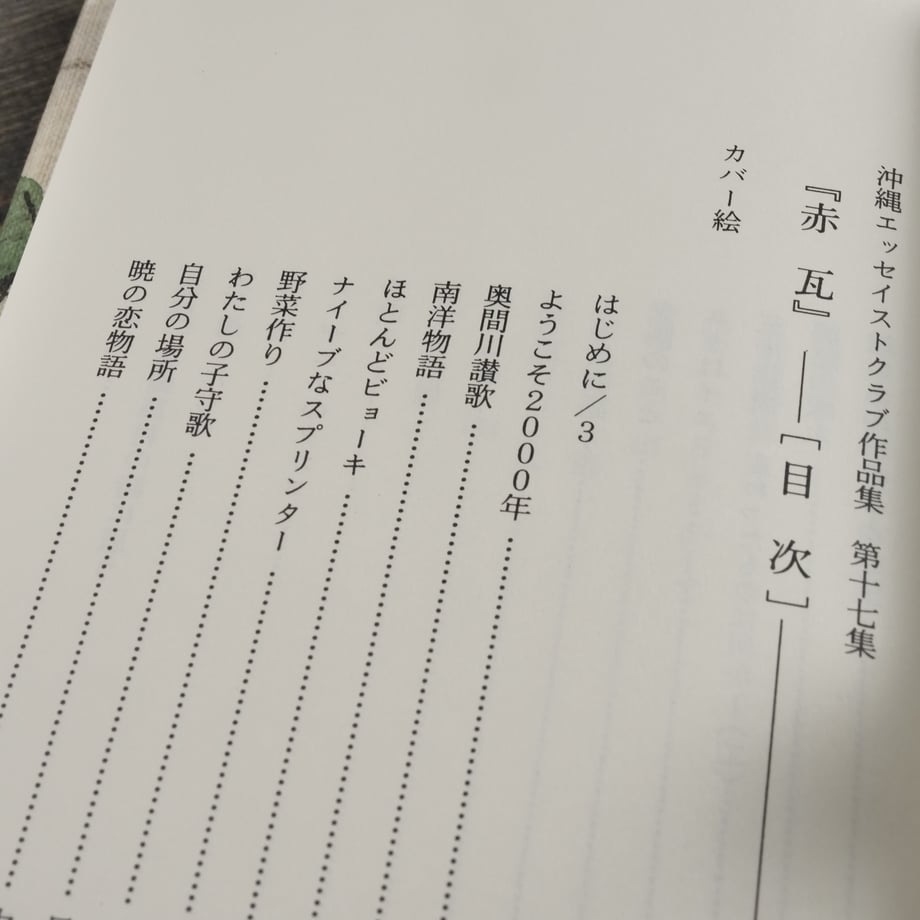 沖縄エッセイストクラブ作品集　第十七集
『赤瓦』――［目次］――
カバー絵
はじめに／3
ようこそ2000年
奥間川讃歌
南洋物語
ほとんどビョーキ
ナイーブなスプリンター
野菜作り
わたしの子守歌
自分の場所
暁の恋物語